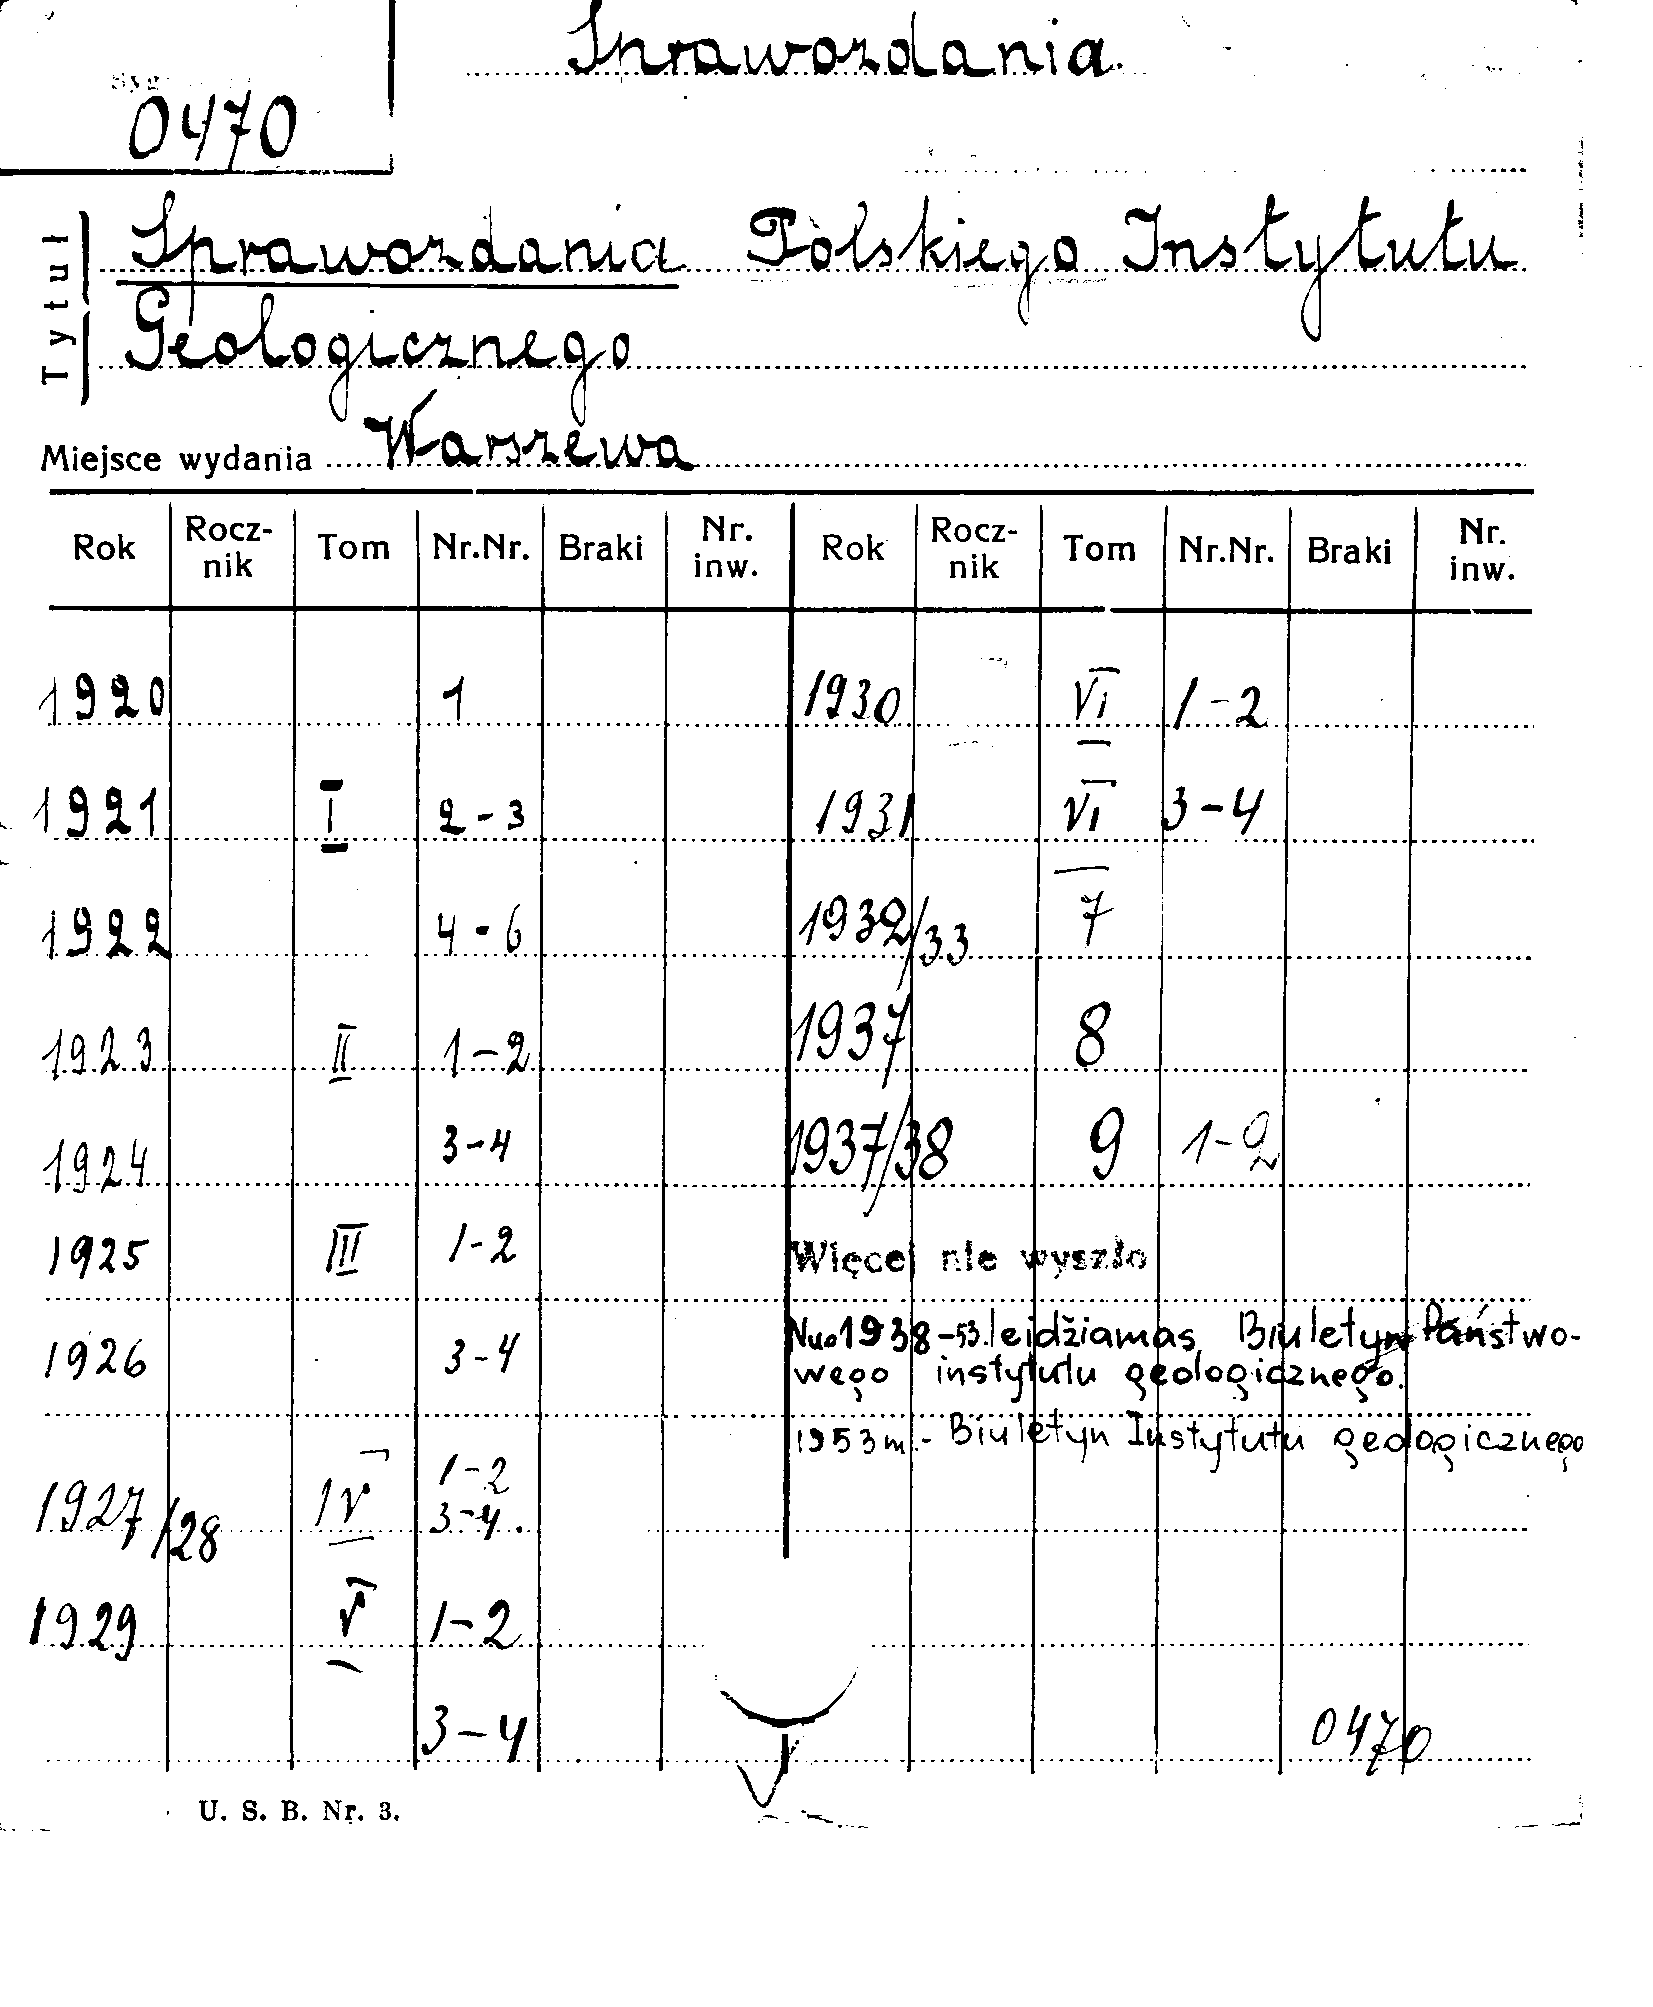 Sprawozdania
Syg.
0470
Tytuł
Sprawozdania Polskiego Instytutu
Geologicznego
Miejsce wydania Warszewa
Rok Rocz-nik Tom Nr.Nr. Braki Nr. inw. Rok Rocz-nik Tom Nr.Nr. Braki Nr. inw.
1920 1 1930 VI 1-2
1921 I 2-3 1931 VI 3-4
1922 4-6 1932/33 7
1923 II 1-2 1937 8
1924 3-4 1937/38 9 1-2
1925 III 1-2 Więcej nie wyszło
1926 3-4 Nuo 1938-53 leidžiamas Biuletyn Państwo-
wego instytutu geologicznego.
1953 m.- Biuletyn Instytutu geologicznego
1927/28 IV 1-2
3-4.
1929 V 1-2
3-4 0470
U. S. B. Nr. 3.